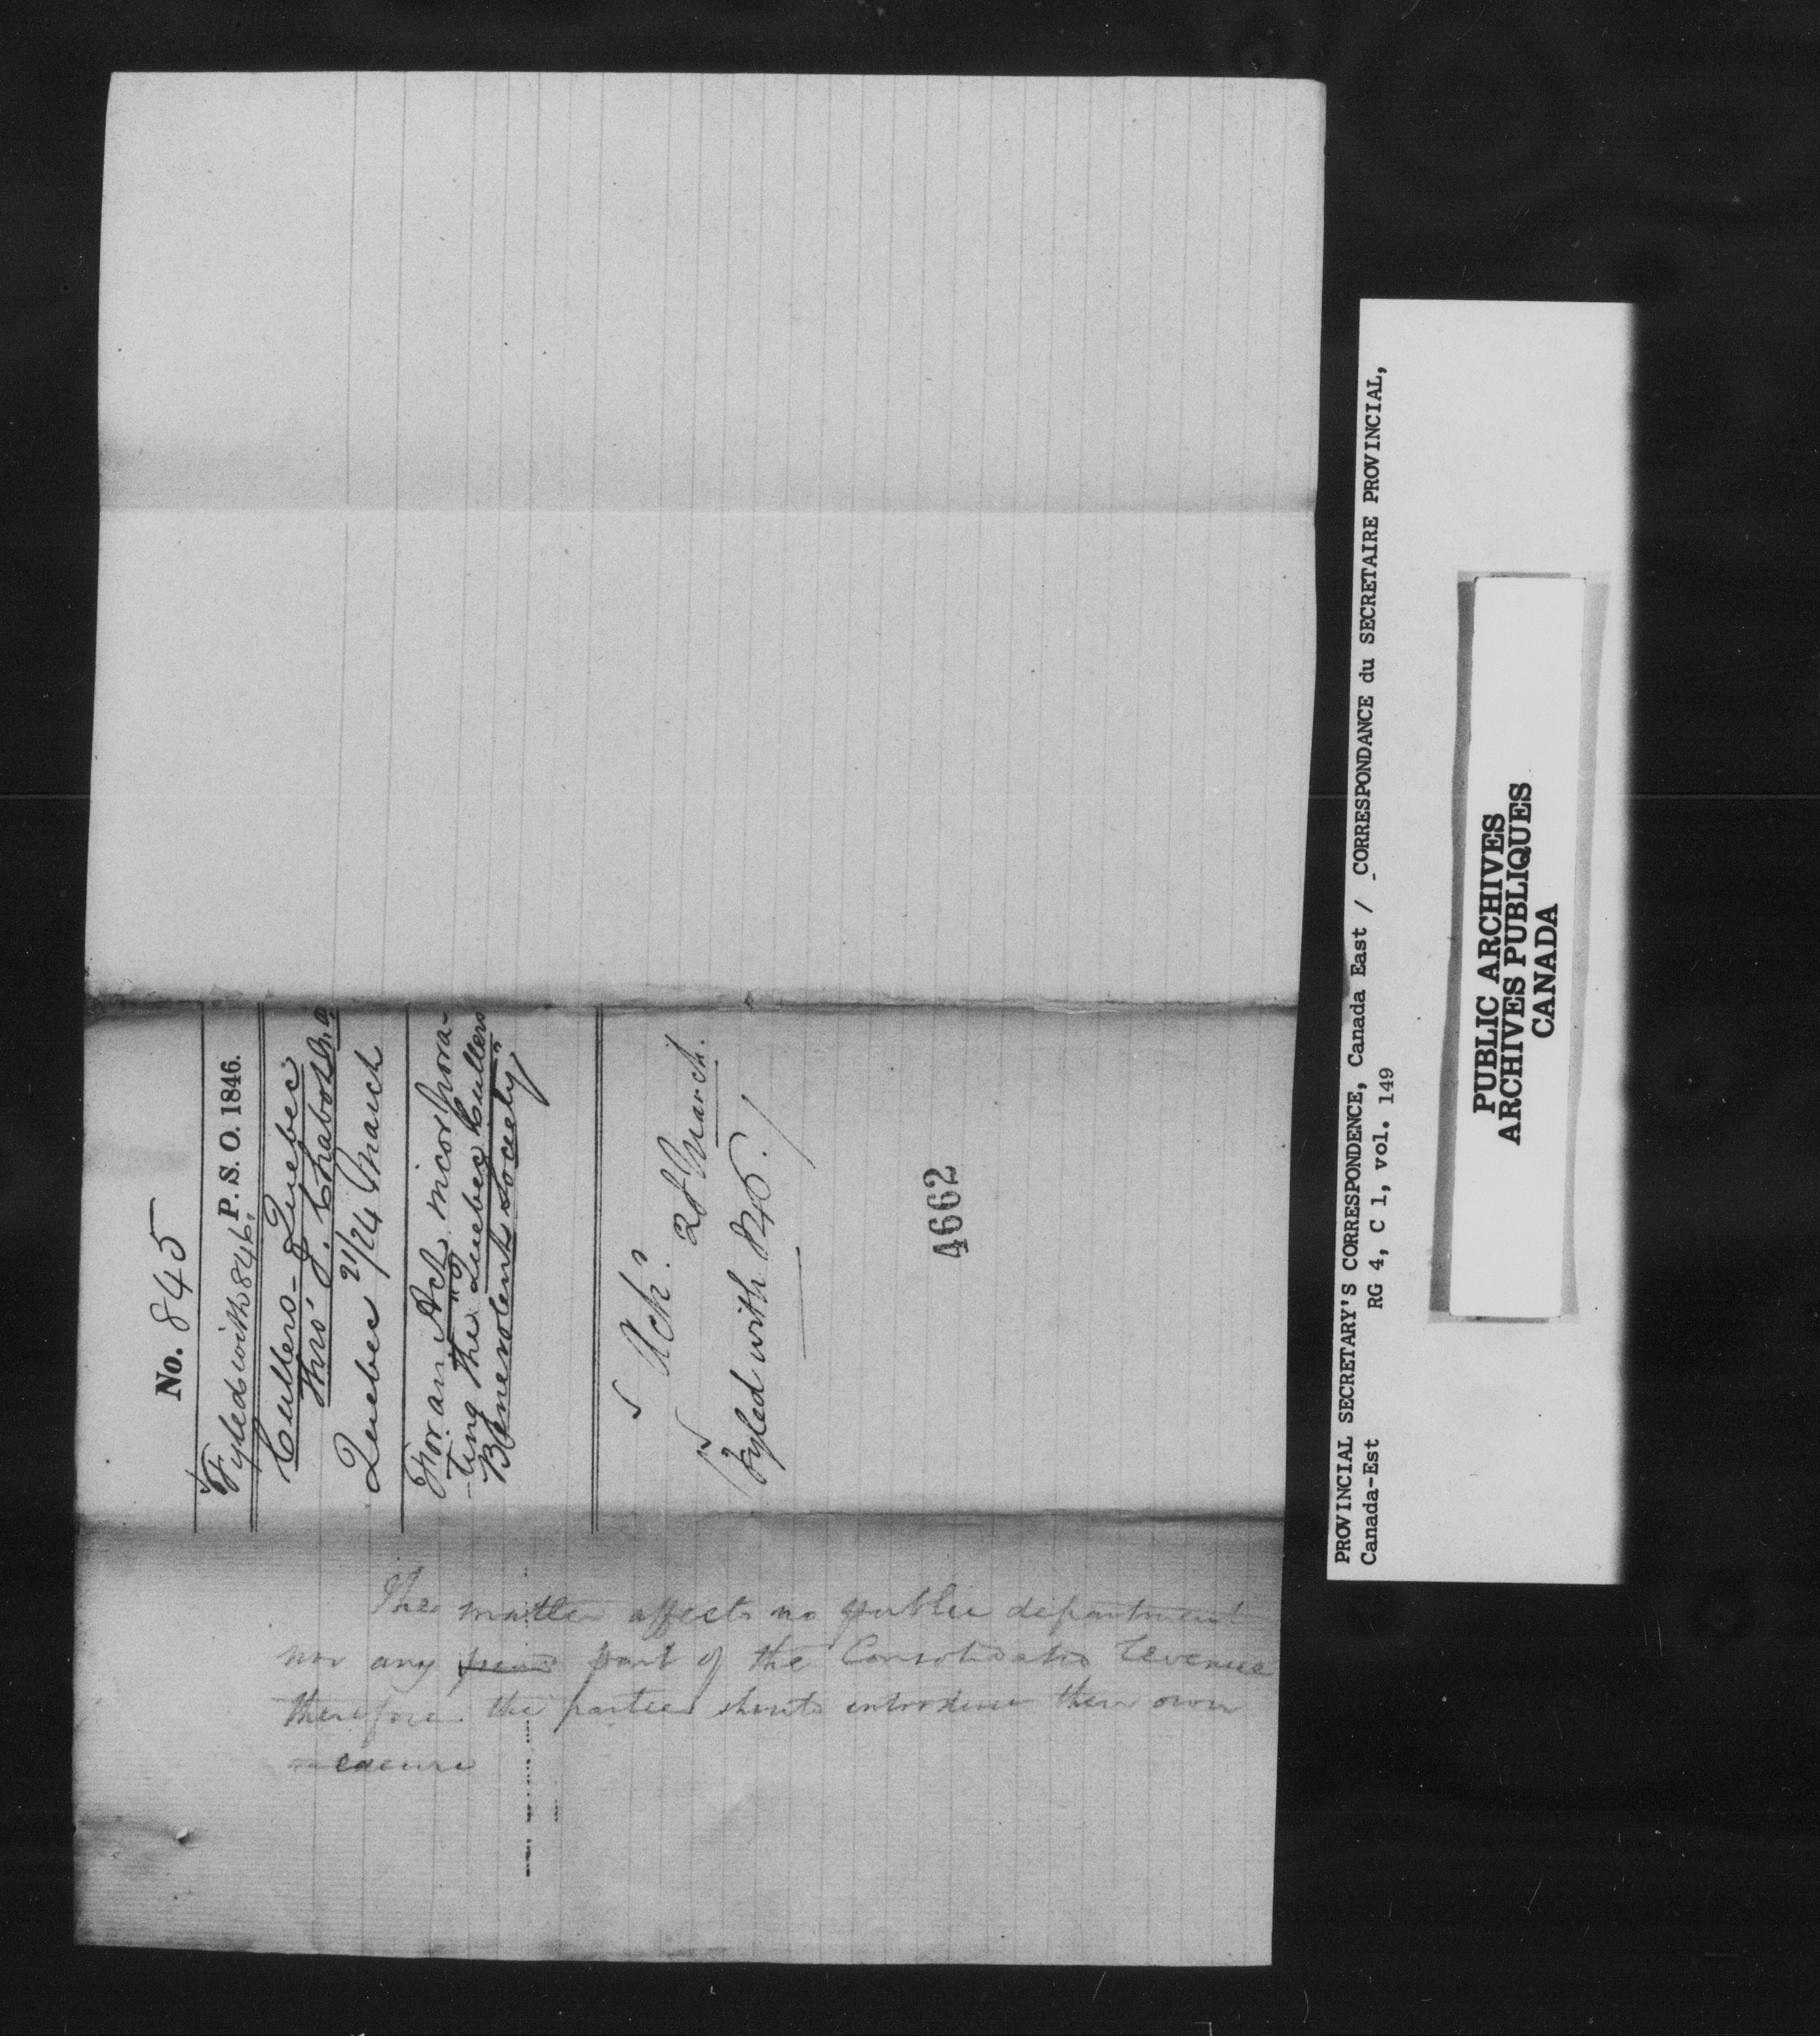 No. 845
Fyled with 846. P. S. O. 1846.
Cullers - Quebec
thro' J. Chabot
Quebec 21/24 March
For an Act incorpora-
-ting the "Quebec Cullers
Benevolent Society"
Ack.d 28 March.
Fyled with 846.
4662
The matter affects no public department
nor any part of the Consolidated Revenue
therefore the parties should introduce their own
measure
PROVINCIAL SECRETARY'S CORRESPONDENCE, Canada East / CORRESPONDANCE du SECRETAIRE PROVINCIAL,
Canada-Est RG 4, C 1, vol. 149
PUBLIC ARCHIVES
ARCHIVES PUBLIQUES
CANADA